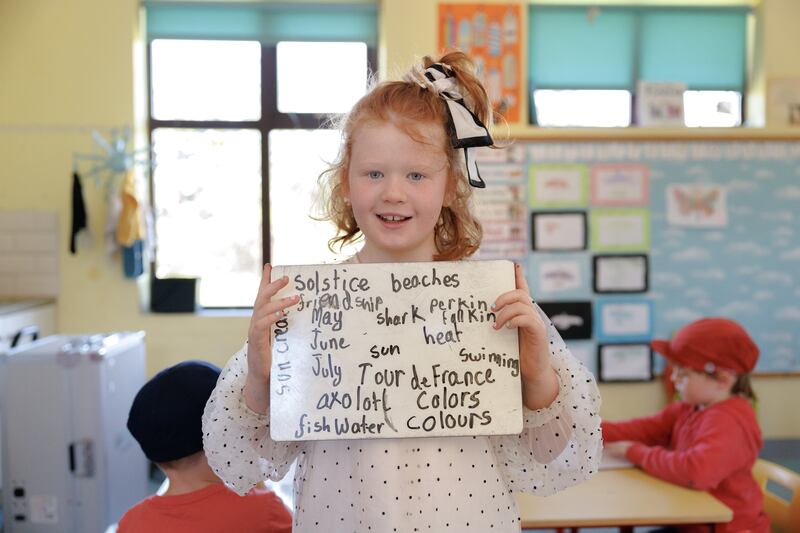 solstice beaches
friendship perkin
May shark tankin
June heat
sun cream
sun swimming
July Tour de France
axolotl colors
fish water colours